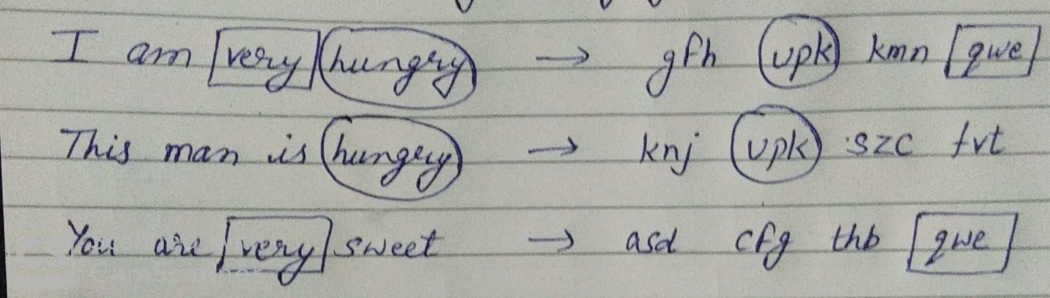 I am very hungry → gfh upk kmn qwe
This man is hungry → knj upk szc tvt
You are very sweet → asd cfg thb qwe